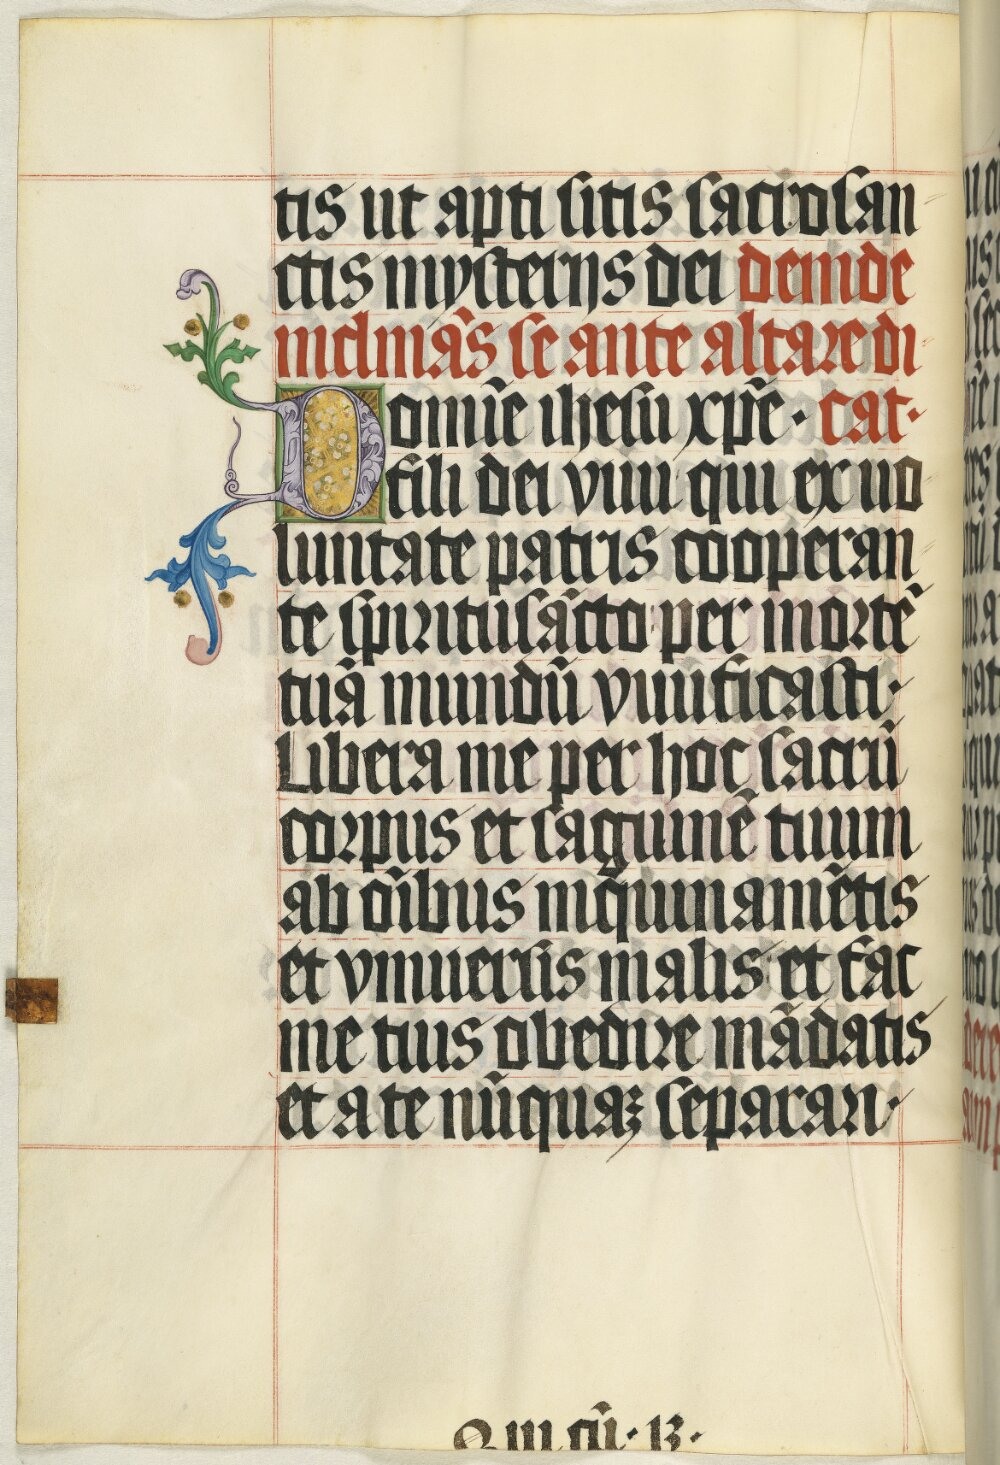 tis ut apti sitis sacrosan
ctis mysterijs dei deinde
inclinãs se ante altare di
Domiñe ihesu xp̃e · cat ·
fili dei viui qui ex uo
luntate patris cooperan
te sp̃iritusãcto per mortẽ
tuã mundũ viuificasti ·
Libera me per hoc sacrũ
corpus et sãguinẽ tuum
ab oĩbus inq̃uinamẽtis
et vniuersis malis et fac
me tuis obedire mãdatis
et a te nũquaꝫ separari ·